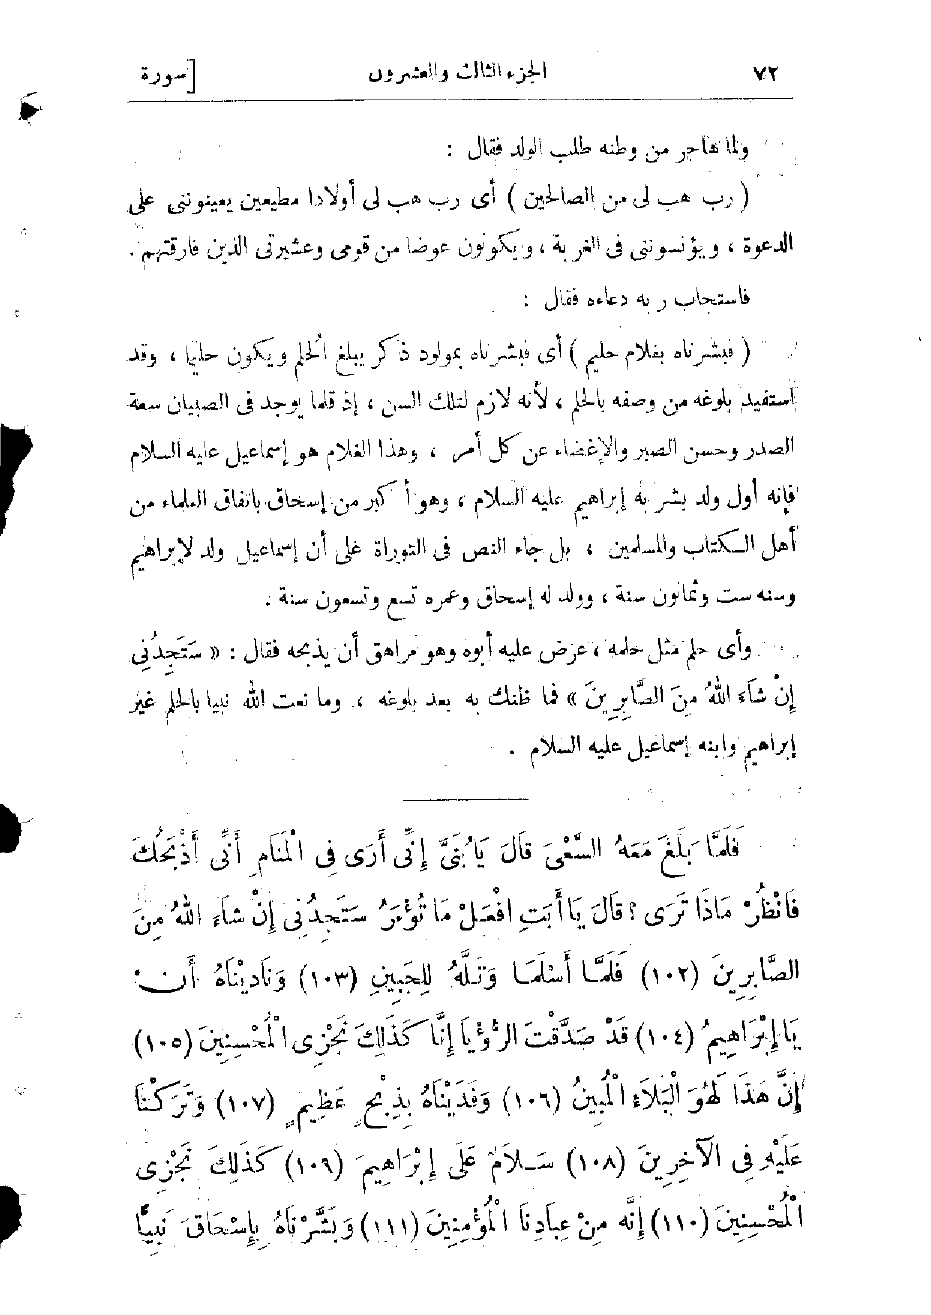 ٧٢ الجزء الثالث والعشرون [سورة
ولما هاجر من وطنه طلب الولد فقال :
( رب هب لى من الصالحين ) أى رب هب لى أولادا مطيعين يعينوننى على
الدعوة ، ويؤنسوننى فى الغربة ، ويكونون عوضا من قومى وعشيرتى الذين فارقتهم .
فاستجاب ربه دعاءه فقال :
( فبشرناه بغلام حليم ) أى فبشرناه بمولود ذكر يبلغ الحلم ويكون حليما ، وقد
استفيد بلوغه من وصفه بالحلم ، لأنه لازم لتلك السن ، إذ قلما يوجد فى الصبيان سعة
الصدر وحسن الصبر والإغضاء عن كل أمر ، وهذا الغلام هو إسماعيل عليه السلام
فإنه أول ولد بشر به إبراهيم عليه السلام ، وهو أكبر من إسحاق باتفاق العلماء من
أهل الكتاب والمسلمين ، بل جاء النص فى التوراة على أن إسماعيل ولد لإبراهيم
وسنه ست وثمانون سنة ، وولد له إسحاق وعمره تسع وتسعون سنة .
وأى حلم مثل حلمه ، عرض عليه أبوه وهو مراهق أن يذبحه فقال : « سَتَجِدُنِي
إِنْ شَاءَ اللهُ مِنَ الصَّابِرِينَ » فما ظنك به بعد بلوغه ، وما نعت الله نبيا بالحلم غير
إبراهيم وابنه إسماعيل عليه السلام .
فَلَمَّا بَلَغَ مَعَهُ السَّعْىَ قَالَ يَا بُنَىَّ إِنِّى أَرَى فِى الْمَنَامِ أَنِّى أَذْبَحُكَ
فَانْظُرْ مَاذَا تَرَى ؟ قَالَ يَا أَبَتِ افْعَلْ مَا تُؤْمَرُ سَتَجِدُنِى إِنْ شَاءَ اللهُ مِنَ
الصَّابِرِينَ (١٠٢) فَلَمَّا أَسْلَمَا وَتَلَّهُ لِلْجَبِينِ (١٠٣) وَنَادَيْنَاهُ أَنْ
يَا إِبْرَاهِيمُ (١٠٤) قَدْ صَدَّقْتَ الرُّؤْيَا إِنَّا كَذَلِكَ نَجْزِى الْمُحْسِنِينَ (١٠٥)
إِنَّ هَذَا لَهُوَ الْبَلَاءُ الْمُبِينُ (١٠٦) وَفَدَيْنَاهُ بِذِبْحٍ عَظِيمٍ (١٠٧) وَتَرَكْنَا
عَلَيْهِ فِى الْآخِرِينَ (١٠٨) سَلَامٌ عَلَى إِبْرَاهِيمَ (١٠٩) كَذَلِكَ نَجْزِى
الْمُحْسِنِينَ (١١٠) إِنَّهُ مِنْ عِبَادِنَا الْمُؤْمِنِينَ (١١١) وَبَشَّرْنَاهُ بِإِسْحَاقَ نَبِيًّا